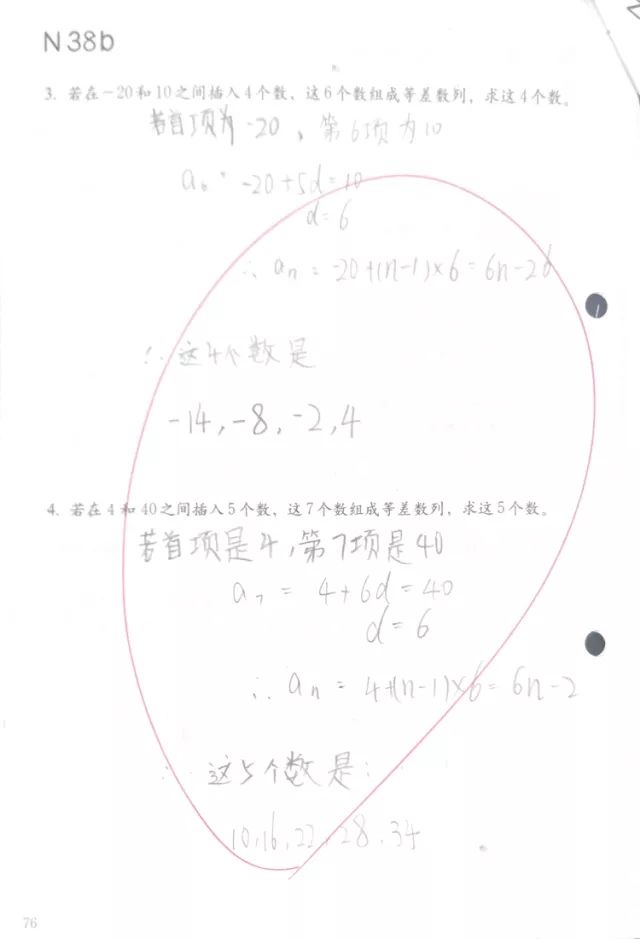 N 38b
3. 若在-20和10之间插入4个数、这6个数组成等差数列，求这4个数。
若首项为-20，第6项为10
a₆ = -20+5d=10
d=6
∴ aₙ = -20+(n-1)×6=6n-26
∴ 这4个数是
-14,-8,-2,4
4. 若在4和40之间插入5个数、这7个数组成等差数列，求这5个数。
若首项是4,第7项是40
a₇ = 4+6d=40
d=6
∴ aₙ = 4+(n-1)×6=6n-2
这5个数是:
10,16,22,28,34
76